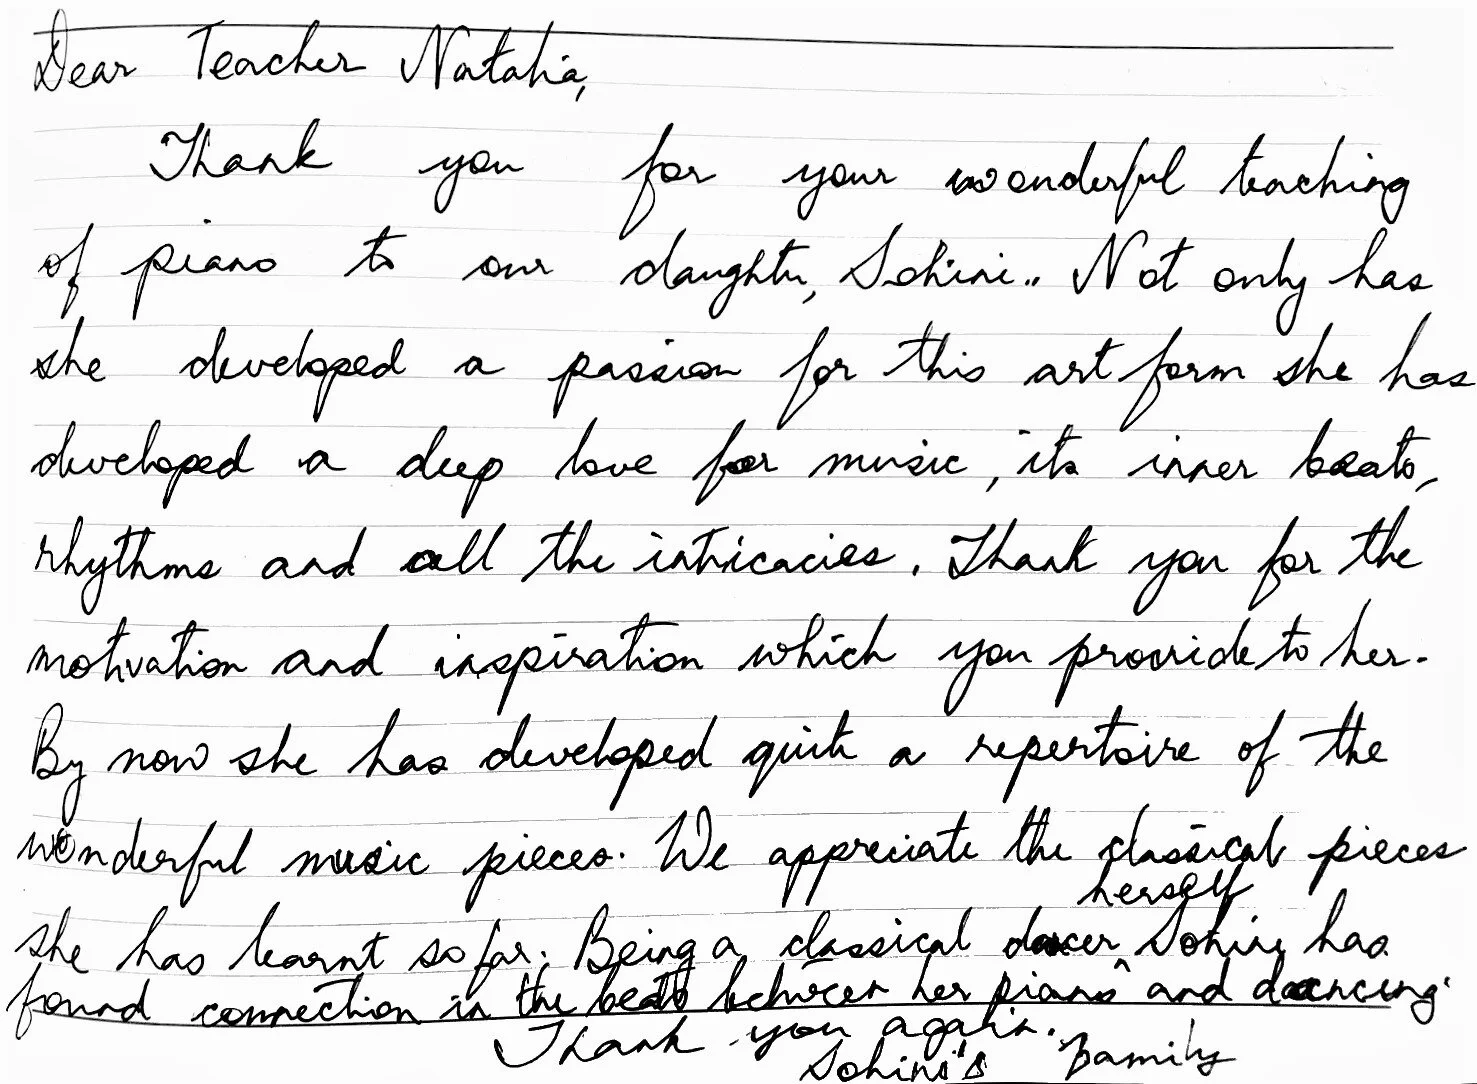 Dear Teacher Natalia,
Thank you for your wonderful teaching
of piano to our daughter, Sohini.. Not only has
she developed a passion for this art form she has
developed a deep love for music, its inner beats,
rhythms and all the intricacies. Thank you for the
motivation and inspiration which you provide to her.
By now she has developed quite a repertoire of the
wonderful music pieces. We appreciate the classical pieces
herself
she has learnt so far. Being a classical dancer ^ Sohini has
found connection in the beats between her piano and dancing.
Thank you again.
Sohini's Family